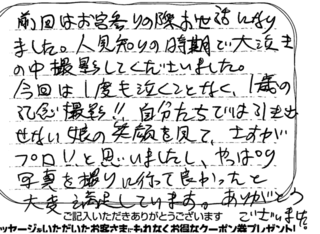 前回はお宮参りの際お世話になり
ました。人見知りの時期で大泣き
の中撮影してくださいました。
今回は1度も泣くことなく、1歳の
記念撮影!! 自分たちでは引き出
せない娘の笑顔を見て、さすが
プロ!!と思いましたし、やっぱり
写真を撮りに行って良かったと
大変満足しています。ありがとう
ございました。
ご記入いただきありがとうございます
ッセージをいただいたお客さまにもれなくお得なクーポン券プレゼント!